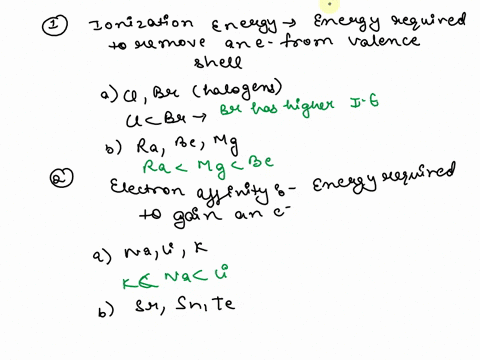 ① Ionization Energy → Energy required
to remove an e- from valence
shell
a) Cl, Br (halogens)
Cl < Br → Br has higher I.E
b) Ra, Be, Mg
Ra < Mg < Be
② Electron affinity :- Energy required
to gain an e-
a) Na, Li, K
K < Na < Li
b) Sr, Sn, Te